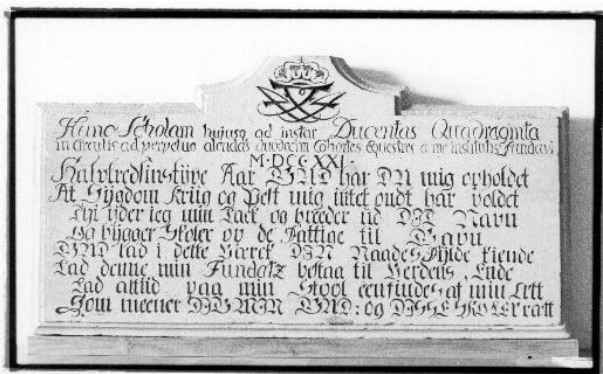 Hanc Scholam hujusq ad instar Ducentas Quadraginta
in circulis ad perpetuo alendas duodecim Cohortes Equestres a me institutis fundavi
M·DCC·XXI·
Halvtredsinstyve Aar GUD har DU mig opholdet
At Sygdom Krüg og Pest mig intet ondt har voldet
Thi yder jeg min Tack og breeder ud DIT Navn
Og bygger Skoler op de Fattige til Gavn
GUD lad i dette Værck DIN Naades Fylde kiende
Lad denne min Fundatz bestaa til Verdens Ende
Lad altiid paa min Stool een findes af min Ætt
Som meener DIG MIN GUD: og DISSE SKOLER rætt